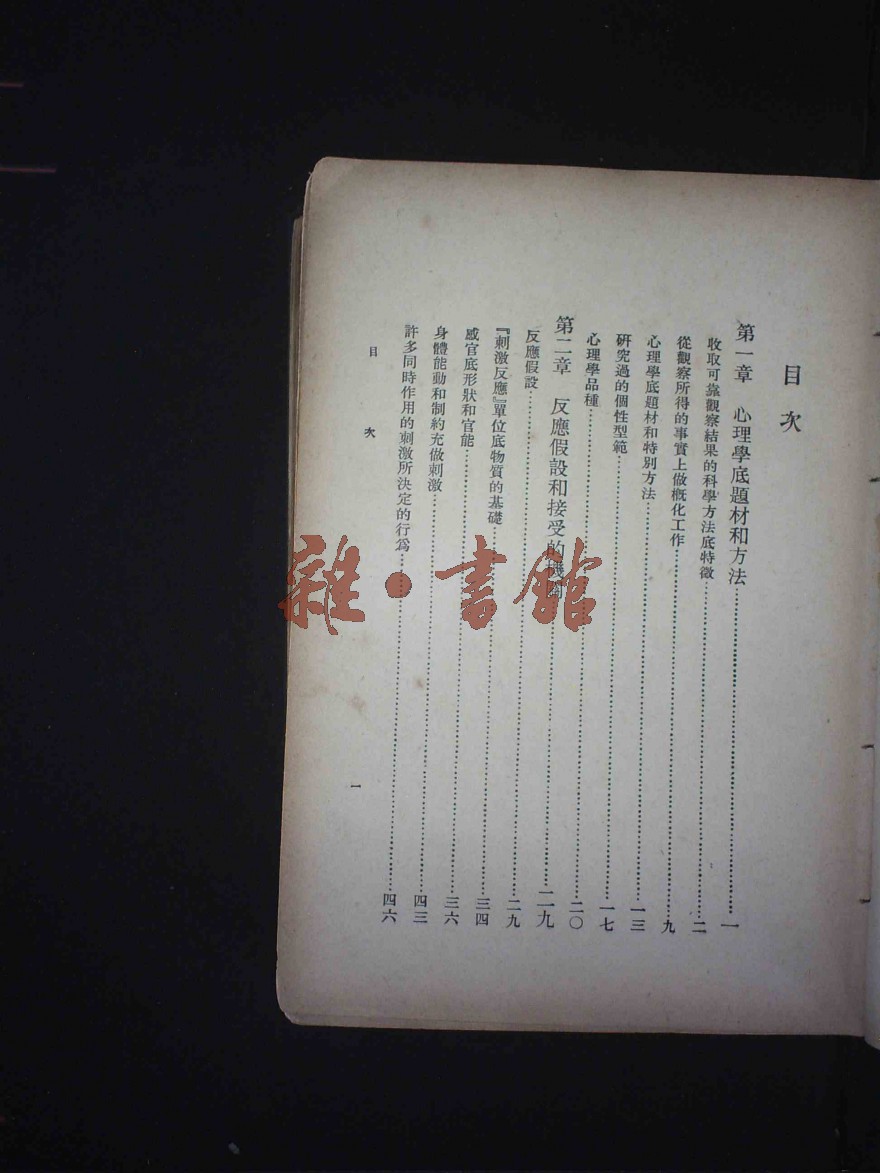 目次
第一章　心理學底題材和方法……一
收取可靠觀察結果的科學方法底特徵……二
從觀察所得的事實上做概化工作……九
心理學底題材和特別方法……一三
研究過的個性型範……一七
心理學品種……二〇
第二章　反應假設和接受的機……二九
反應假設……二九
『刺激反應』單位底物質的基礎……三四
感官底形狀和官能……三六
身體能動和制約充做刺激……四三
許多同時作用的刺激所決定的行爲……四六
目次
一
雜·書館